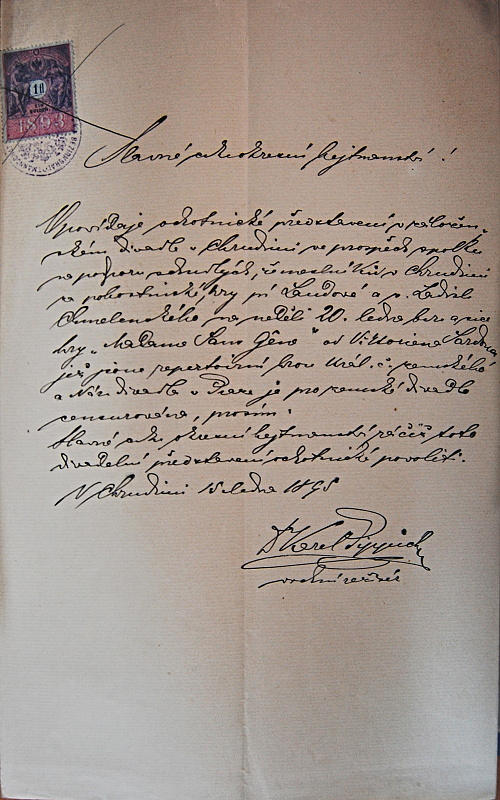 1 fl
1893
Slavné c.k. okresní hejtmanství!
Vypovídaje ochotnické představení v záložen-
ském divadle v Chrudimi ve prospěch spolku
na podporu schudlých řemeslníků v Chrudimi
za pohostinské hry pí Laudové a p. Ladisl
Chmelenského na neděli 20. ledna bez a sice
hry „Madame Sans Gêne" od Viktoriena Sardoua
jež jsouc repertoirní hrou Král. č. zemského
a Nár. divadla v Praze je pro zemské divadlo
censurována, prosím:
Slavné c.k. okresní hejtmanství račiž toto
divadelní představení ochotnické povoliti.
V Chrudimi 15 ledna 1895
Dr Karel Pippich